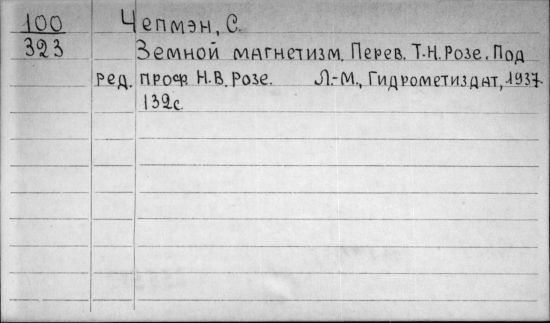 100 Чепмэн, С.
323 Земной магнетизм. Перев. Т.Н. Розе. Под
ред. проф. Н.В. Розе. Л.-М., Гидрометиздат, 1937.
132с.